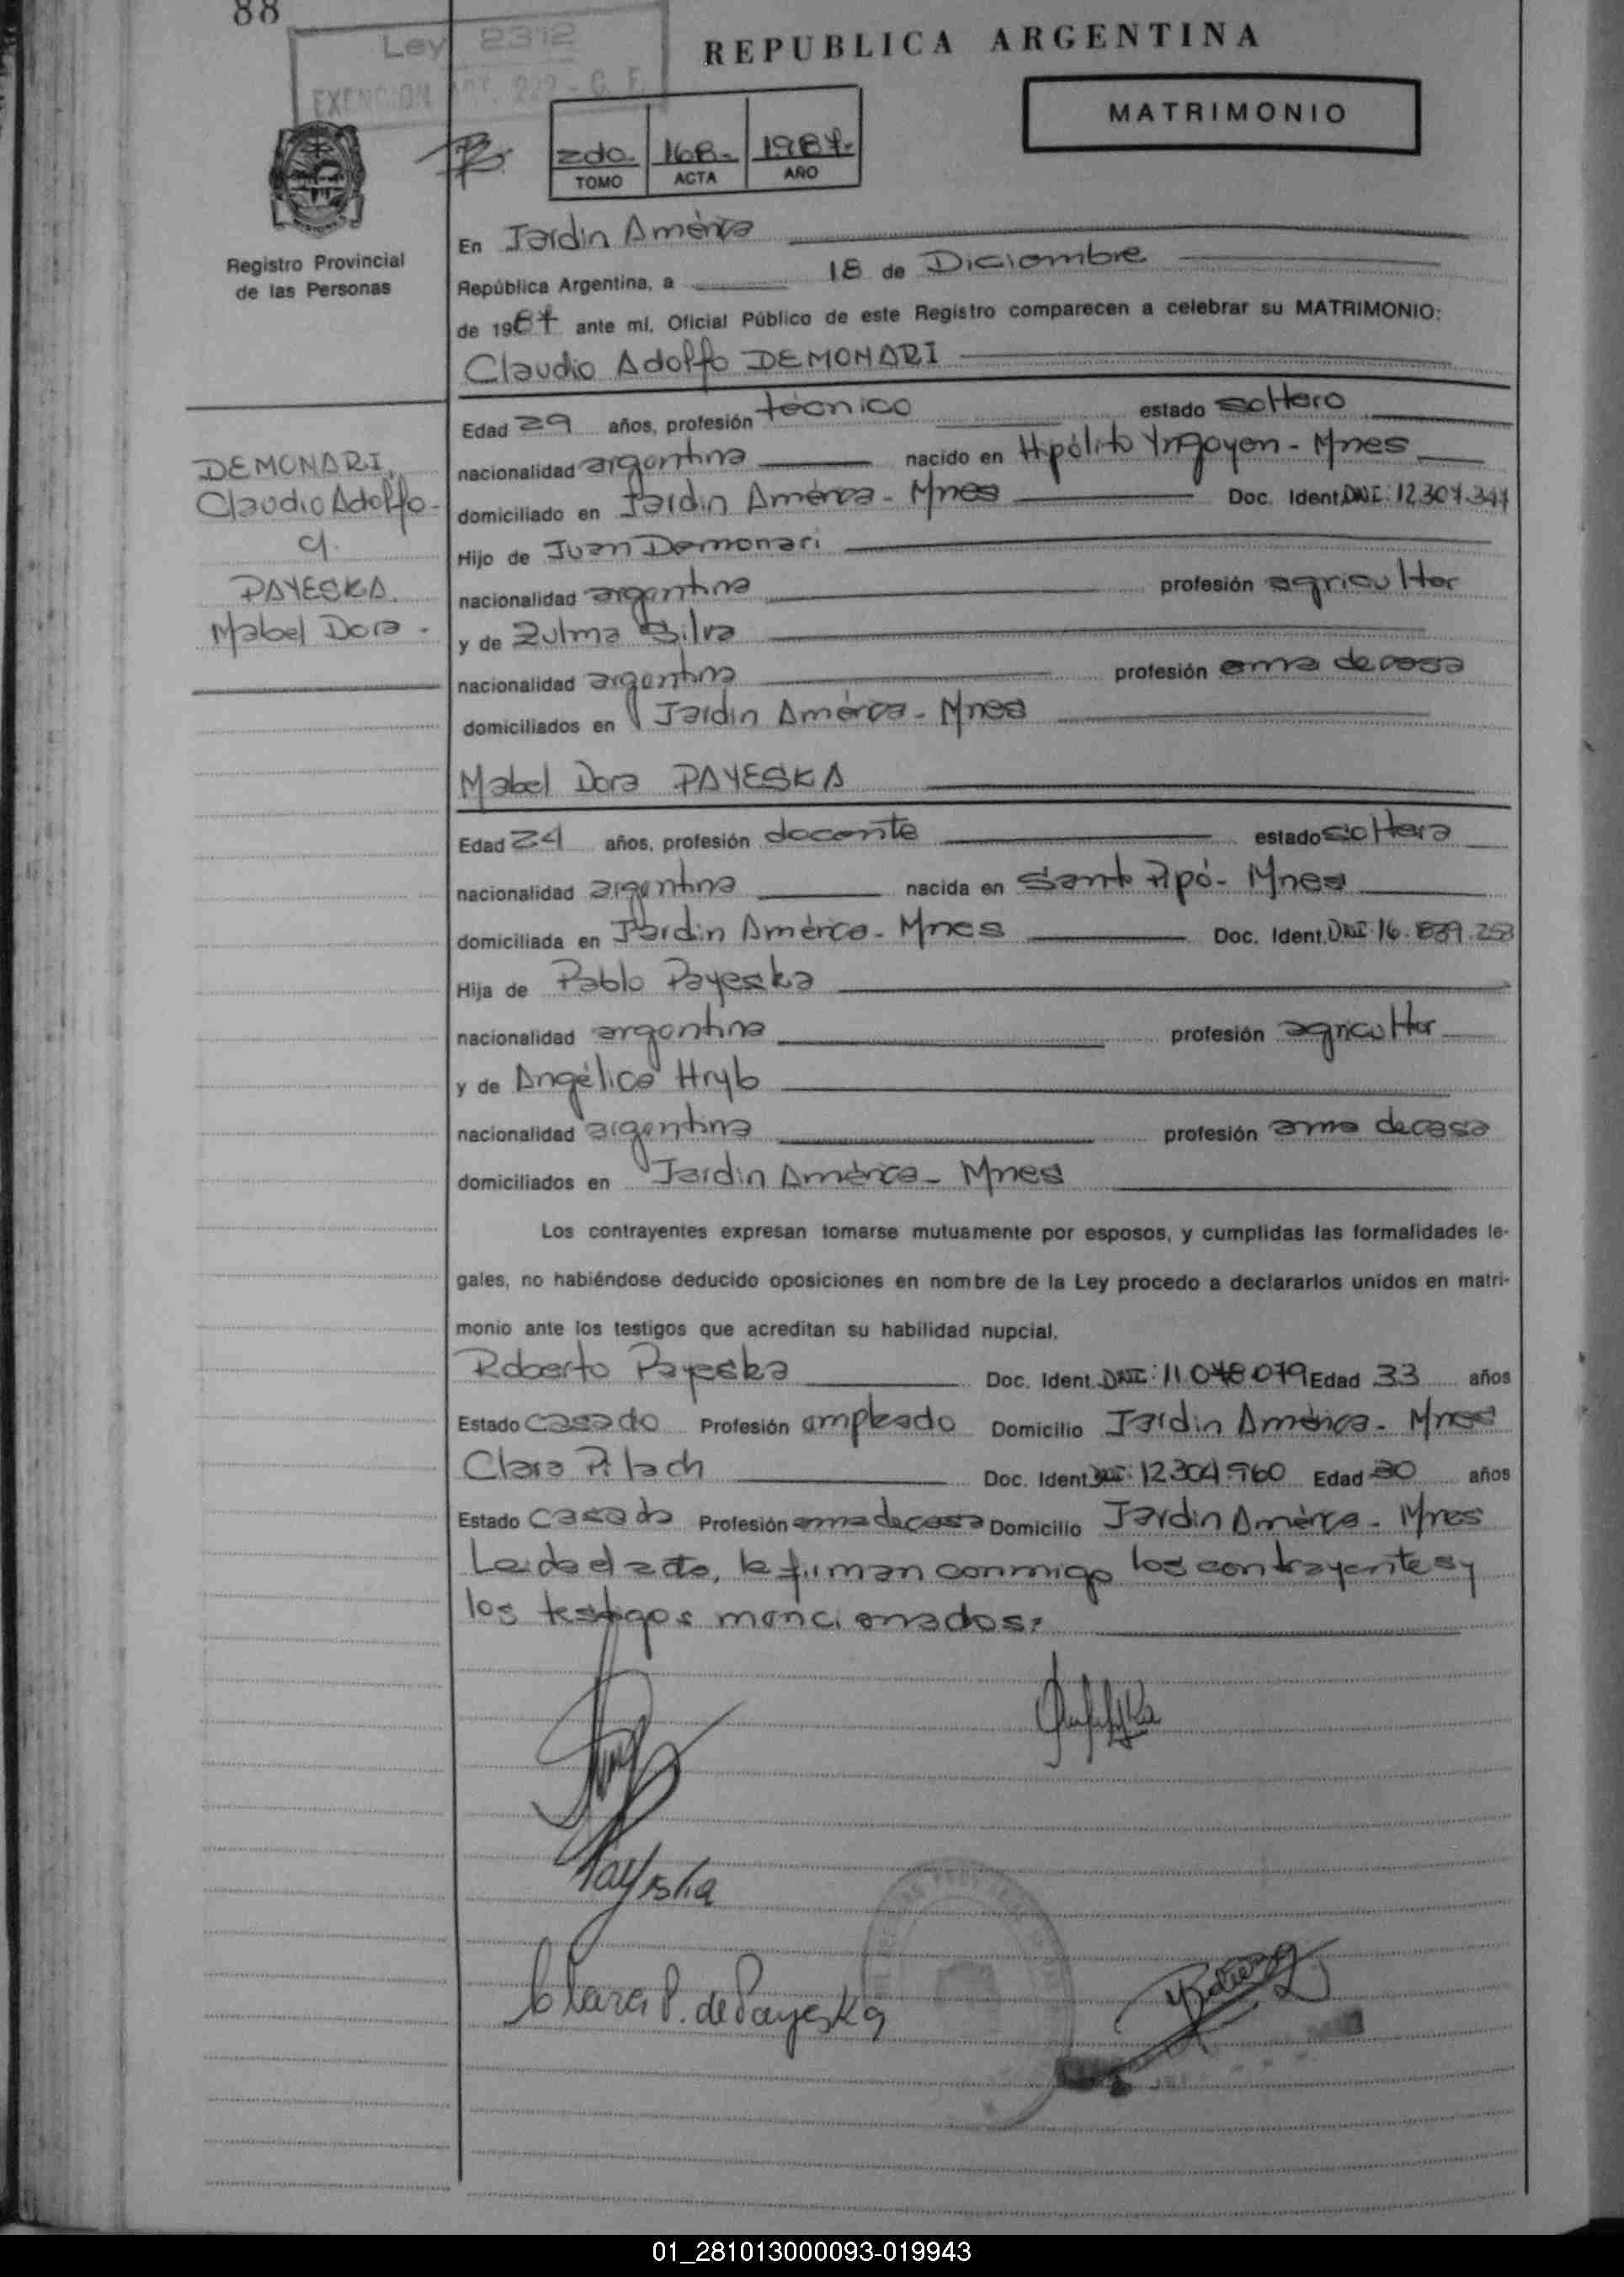 88
Ley 2312
EXENCION ART. 222 - C. F.
REPUBLICA ARGENTINA
MATRIMONIO
2do. 168- 1987-
TOMO ACTA AÑO
Registro Provincial
de las Personas
En Jardin América
República Argentina, a 18 de Diciembre
de 1987 ante mí, Oficial Público de este Registro comparecen a celebrar su MATRIMONIO:
Claudio Adolfo DEMONARI
DEMONARI,
Claudio Adolfo-
c/.
PAYESKA.
Mabel Dora -
Edad 29 años, profesión técnico estado soltero
nacionalidad argentina nacido en Hipólito Yrigoyen - Mnes
domiciliado en Jardin América - Mnes Doc. Ident DNI: 12.307.347
Hijo de Juan Demonari
nacionalidad argentina profesión agricultor
y de Zulma Silva
nacionalidad argentina profesión ama de casa
domiciliados en Jardin América - Mnes
Mabel Dora PAYESKA
Edad 24 años, profesión docente estado soltera
nacionalidad argentina nacida en Santo Pipó - Mnes
domiciliada en Jardin América - Mnes Doc. Ident. DNI 16.839.253
Hija de Pablo Payeska
nacionalidad argentina profesión agricultor
y de Angélica Hryb
nacionalidad argentina profesión ama de casa
domiciliados en Jardin América - Mnes
Los contrayentes expresan tomarse mutuamente por esposos, y cumplidas las formalidades le-
gales, no habiéndose deducido oposiciones en nombre de la Ley procedo a declararlos unidos en matri-
monio ante los testigos que acreditan su habilidad nupcial.
Roberto Payeska Doc. Ident. DNI: 11.048.079 Edad 33 años
Estado casado Profesión empleado Domicilio Jardin América - Mnes
Clara Pilach Doc. Ident DNI: 12.304.960 Edad 30 años
Estado casada Profesión ama de casa Domicilio Jardin América - Mnes
Leida el acta, la firman conmigo los contrayentes y
los testigos mencionados:
Payeska
Clara P. de Payeska
01_281013000093-019943